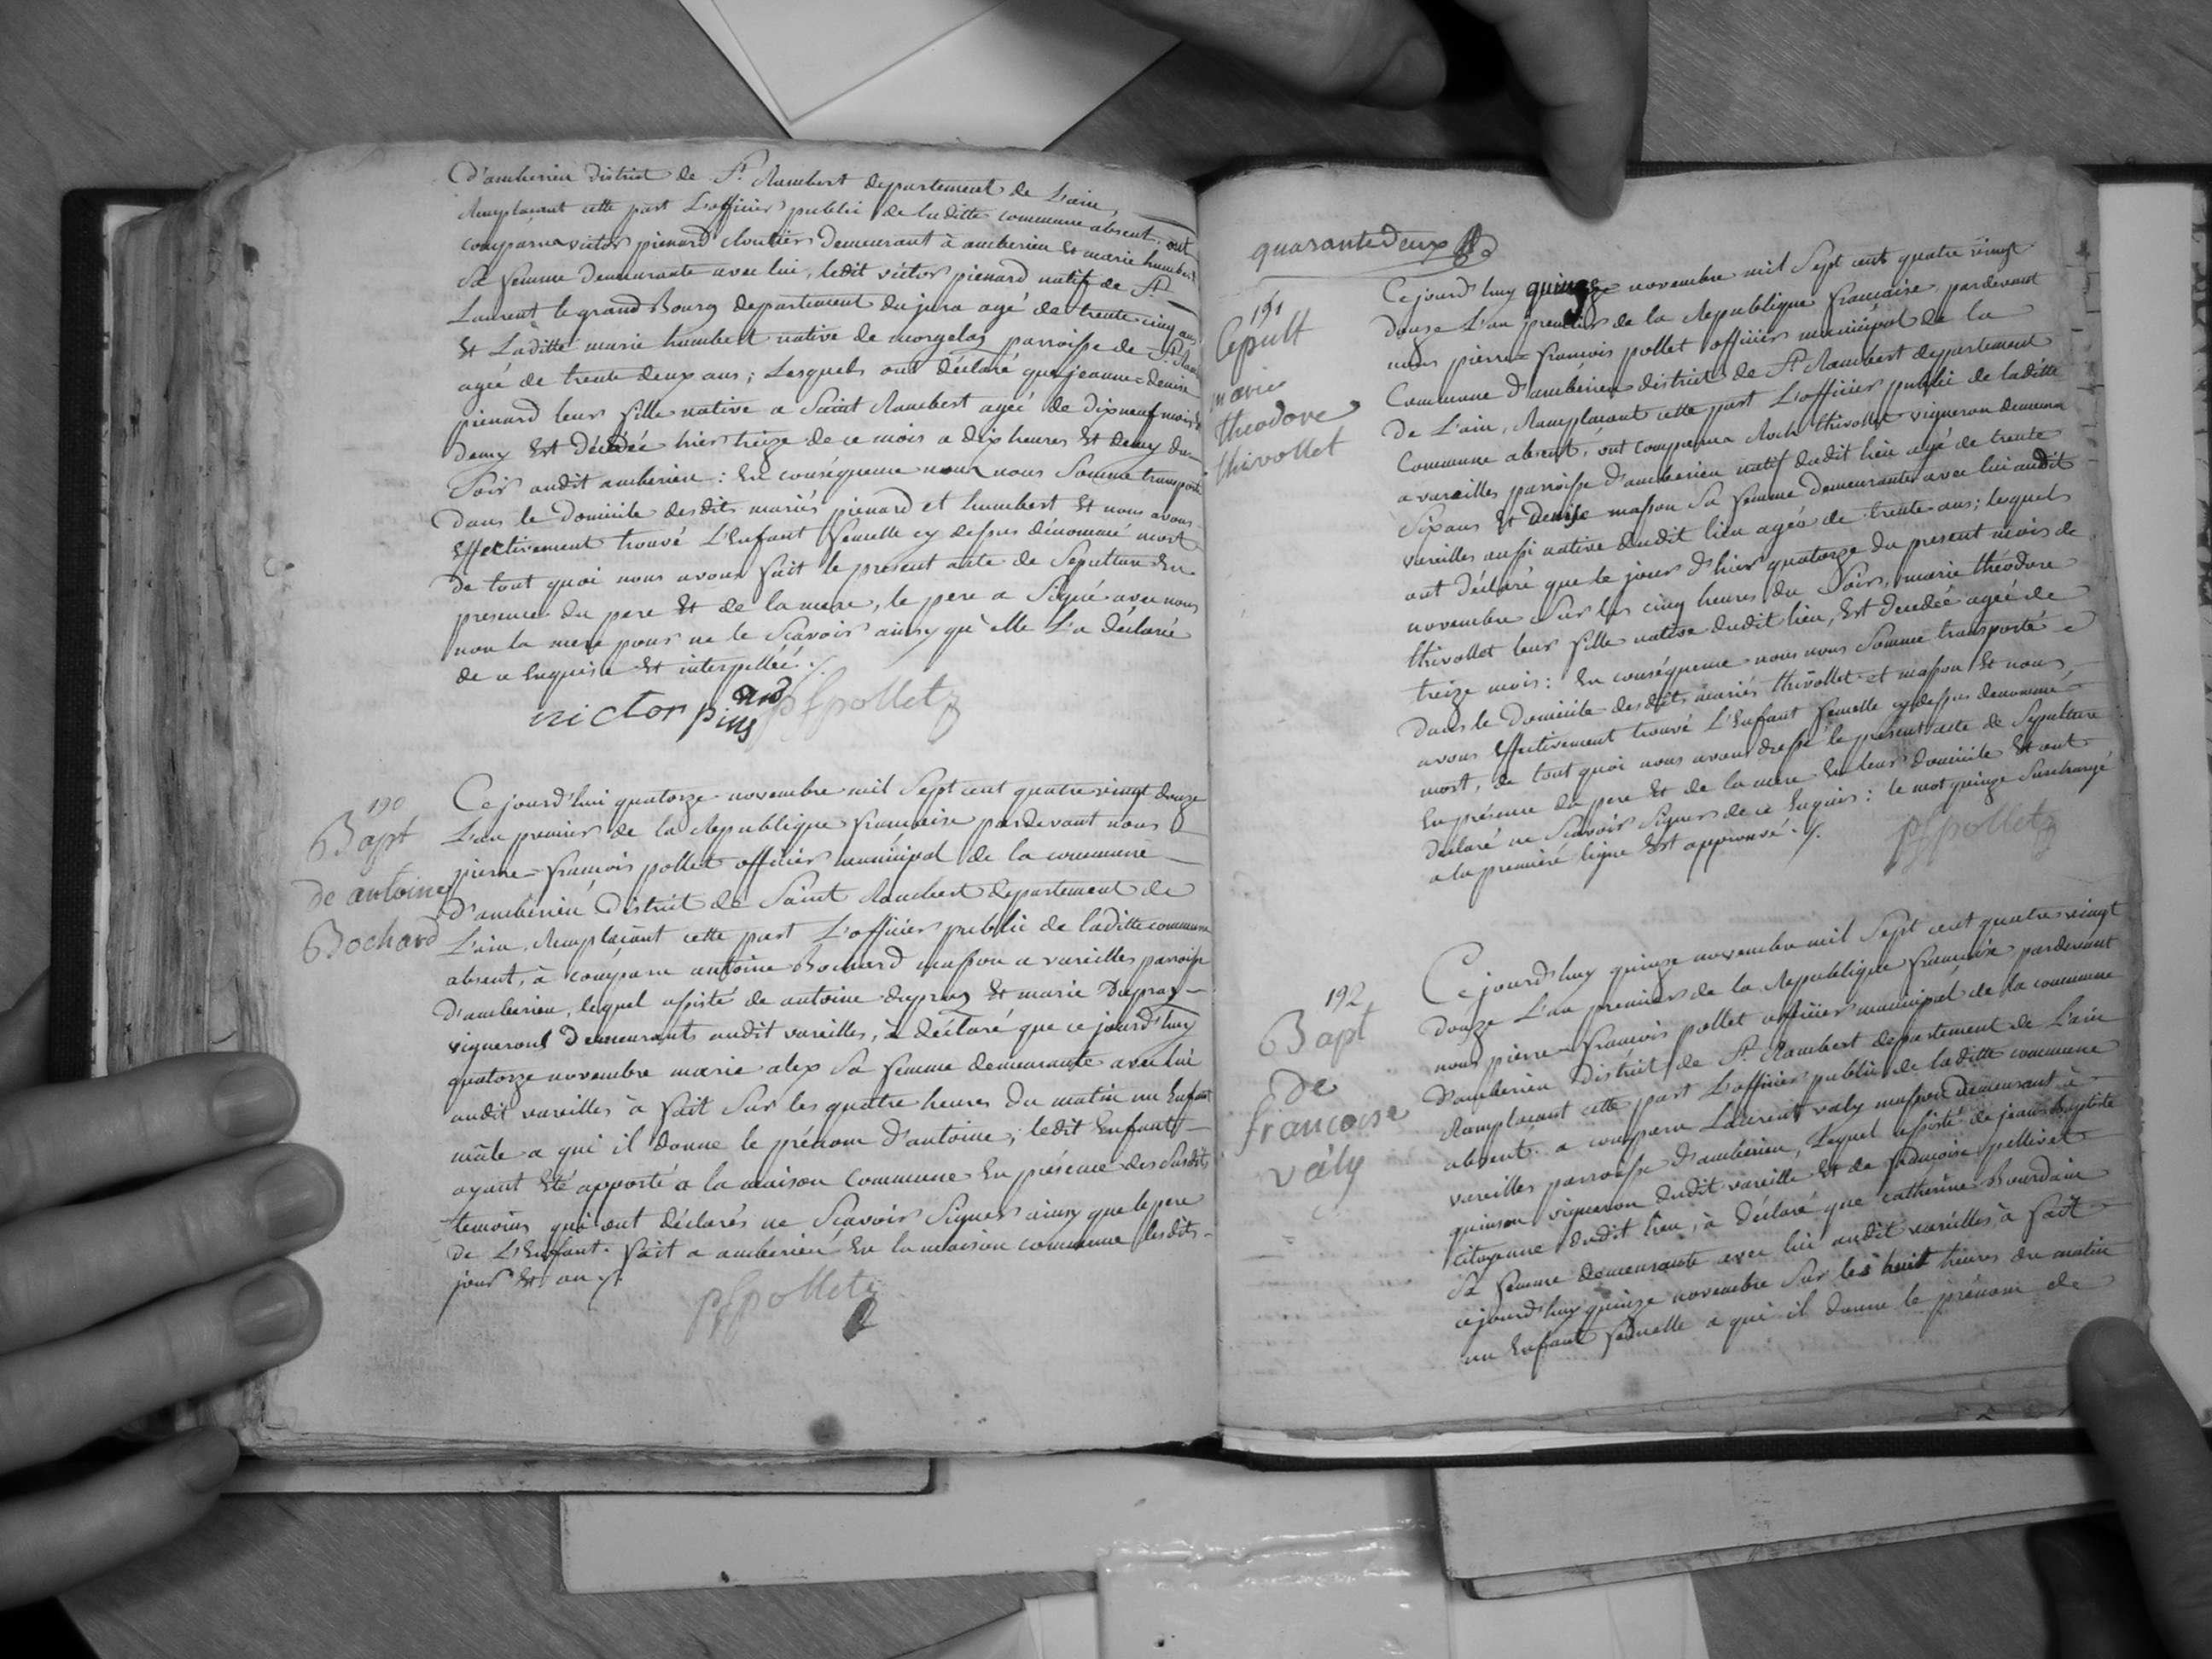 D'amberieu district de St. Rambert departement de L'ain,
Remplaçant cette part L'officier public de laditte commune absent. ont
comparu victor pienard cloutier demeurant à amberieu et marie humbert
Sa femme demeurante avec lui, ledit victor pienard natif de St.
Laurent le grand Bourg departement du jura agé de trente cinq ans
Et Laditte marie humbert native de morgelas parroisse de St. Ram
agée de trente deux ans ; Lesquels ont déclaré que jeanne=denise
pienard leur fille native a Saint Rambert agéé de dixneuf mois &
demy Est décédée hier treize de ce mois a dix heures Et demy du
Soir audit amberieu : En conséquence nous nous Somme transporté
dans le Domicile desdits mariés pienard et humbert Et nous avons
Effectivement trouvé L'Enfant femelle cy dessus dénommé mort
de tout quoi nous avons fait le present acte de Sepulture En
presence du pere Et de la mere, le pere a Signé avec nous
non la mere pour ne le Scavoir ainsy qu'elle L'a déclarée
de ce Enquise Et interpelléé ./.
victor pienard pfpollet
190
Bapt
de antoine
Bochard
Ce jourd'hui quatorze novembre mil Sept cent quatre vingt douze
L'an premier de la Republique francaise pardevant nous
pierre=francois pollet officier municipal de la commune
d'amberieu District de Saint Rambert departement de
L'ain, Remplaçant cette part L'officier public de laditte commune
absent, à comparu antoine Bochard masson a vareilles parroisse
d'amberieu, lequel assisté de antoine dupras Et marie Dupras
vignerons Demeurants audit vareilles, à déclaré que ce jourd'huy
quatorze novembre marie alex Sa femme demeurante avec lui
audit vareilles à fait Sur les quatre heures du matin un Enfant
mâle a qui il donne le prénom d'antoine ; ledit Enfant
ayant Eté apporté a la maison commune En présence des Susdits
temoins qui ont déclarés ne Scavoir Signer ainsy que le pere
de L'Enfant. fait a amberieu En la maison commune lesdits
jour Et an ./.
pfpollet
quarante deux
191
Sepult
marie
theodore
thivollet
Ce jourd'huy quinze novembre mil Sept cent quatre vingt
douze L'an premier de la Republique francaise pardevant
nous pierre=francois pollet officier municipal de la
Commune d'amberieu district de St. Rambert departement
de L'ain, Remplacant cette part L'officier public de laditte
Commune absent, ont comparu Roch thivollet vigneron demeurant
a vareilles parroisse d'amberieu natif dudit lieu agé de trente
Six ans Et denise masson Sa femme Demeurante avec lui audit
vareilles aussi native dudit lieu agéé de trente ans ; lesquels
ont déclaré que le jour d'hier quatorze du present mois de
novembre Sur les cinq heures du Soir, marie théodore
thivollet leur fille native dudit lieu, Est decedée agéé de
treize mois : En conséquence nous nous Somme transporté
dans le Domicile desdits mariés thivollet et masson Et nous
avons Effectivement trouvé L'Enfant femelle cydessus denommé
mort, de tout quoi nous avons dressé le présent acte de Sepulture
En présence du pere Et de la mere En leur domicile Et ont
declaré ne Scavoir Signer de ce Enquis : le mot quinze Surchargé
a la premiere ligne Est approuvé ./. pfpollet
192
Bapt
de
francoise
valy
Ce jourd'huy quinze novembre mil Sept cent quatre vingt
douze L'an premier de la Republique francaise pardevant
nous pierre=francois pollet officier municipal de la commune
d'amberieu District de St. Rambert departement de L'ain
Remplacant cette part L'officier public de laditte commune
absent. a comparu Laurent valy masson demeurant à
vareilles parroisse d'amberieu, Lequel assisté de jean Baptiste
quinson vigneron dudit vareille Et de francoise pellivet
citoyenne dudit lieu, à déclaré que catherine Bourdain
Sa femme demeurante avec lui audit vareilles, à fait
cejourd'huy quinze novembre Sur les huit heures du matin
un Enfant femelle a qui il donne le prénom de